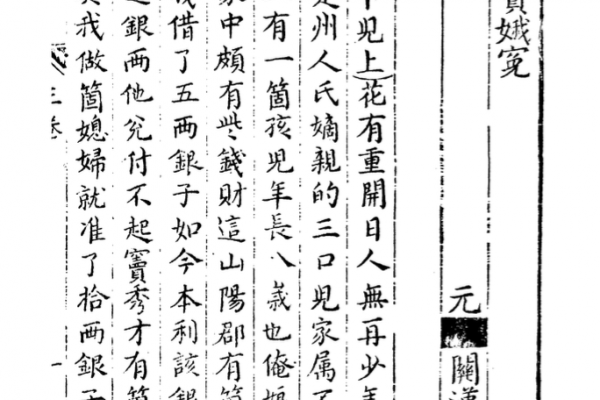 竇娥冤
元 關漢
卜兒上花有重開日人無再少年
楚州人氏嫡親的三口兒家属不
有一箇孩兒年長八歲也俺娘
家中頗有些錢財這山陽郡有箇
我借了五两銀子如今本利該銀
這銀两他兊付不起竇秀才有箇
與我做箇媳婦就准了拾两銀子
三卷 一